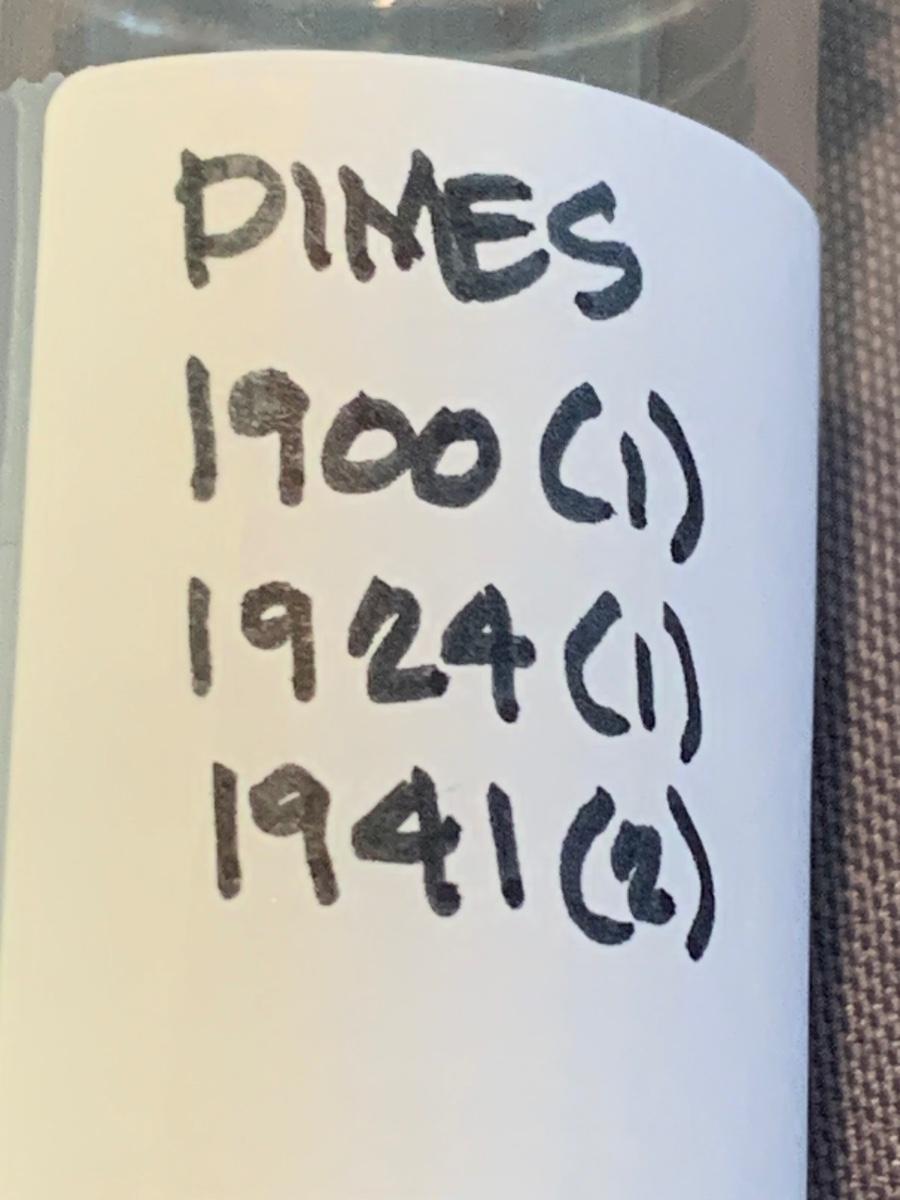 DIMES
1900 (1)
1924 (1)
1941 (2)